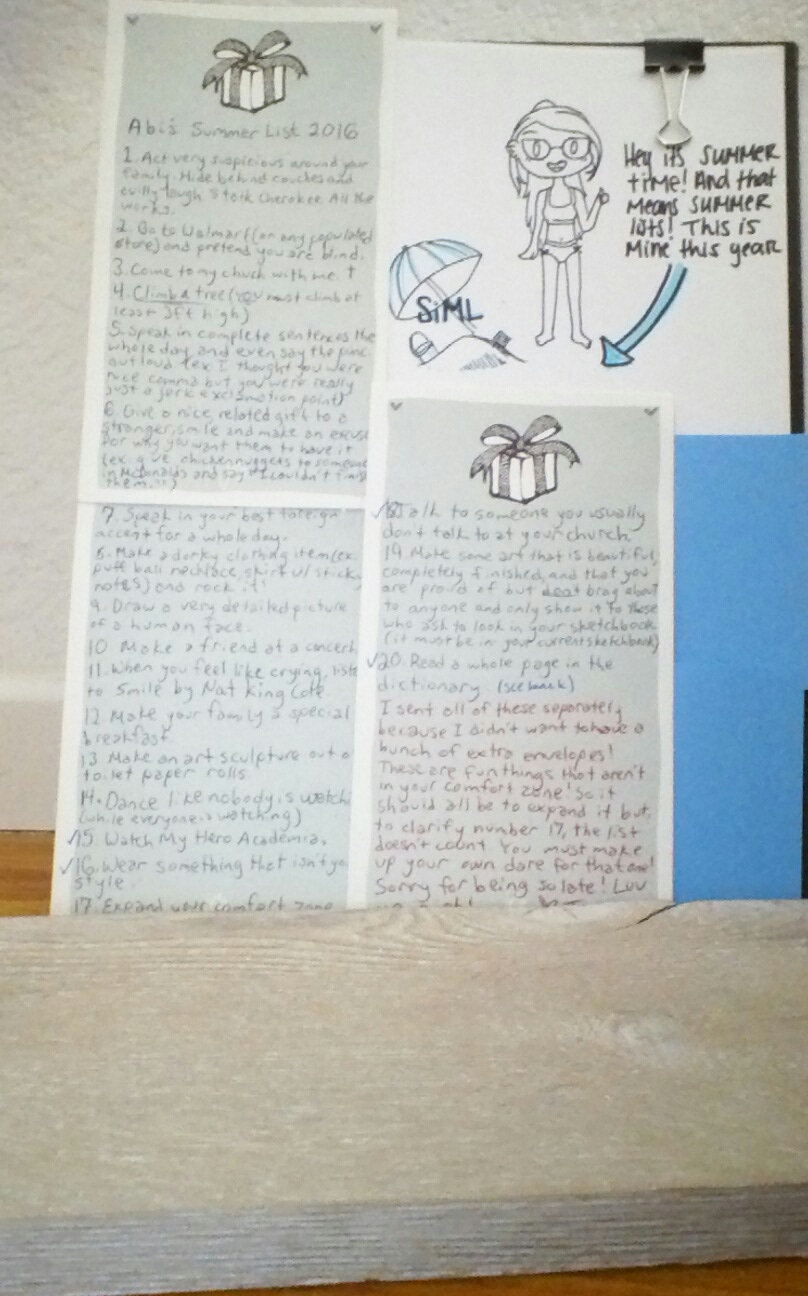 Abi's Summer List 2016
1. Act very suspicious around your
family. Hide behind couches and
evilly laugh. Stalk Cherokee. All the
works.
2. Go to Walmart (or any populated
store) and pretend you are blind.
3. Come to my church with me. †
4. Climb a tree (you must climb at
least 3ft high)
5. Speak in complete sentences the
whole day and even say the punc.
out loud (ex. I thought you were
nice comma but you were really
just a jerk exclamation point)
6. Give a nice related gift to a
stranger, smile and make an excuse
for why you want them to have it
(ex. give chicken nuggets to someone
in McDonalds and say "I couldn't finish
them.")
7. Speak in your best foreign
accent for a whole day.
8. Make a dorky clothing item (ex.
puff ball necklace, skirt w/ sticky
notes) and rock it!
9. Draw a very detailed picture
of a human face.
10. Make a friend at a concert
11. When you feel like crying, liste
to Smile by Nat King Cole
12. Make your family a special
breakfast.
13 Make an art sculpture out o
toilet paper rolls
14. Dance like nobody is watchi
(while everyone is watching)
✓15. Watch My Hero Academia.
✓16. Wear something that isn't yo
style.
17. Expand your comfort zone
Hey its SUMMER
time! And that
Means SUMMER
lists! This is
Mine this year
SiML
✓18 Talk to someone you usually
don't talk to at your church.
19. Make some art that is beautiful,
completely finished, and that you
are proud of but dont brag about
to anyone and only show it to those
who ask to look in your sketchbook
(it must be in your current sketchbook)
✓20. Read a whole page in the
dictionary (see back)
I sent all of these separately
because I didn't want to have a
bunch of extra envelopes!
These are fun things that aren't
in your comfort zone! So it
should all be to expand it but,
to clarify number 17, the list
doesn't count. You must make
up your own dare for that one!
Sorry for being so late! Luv